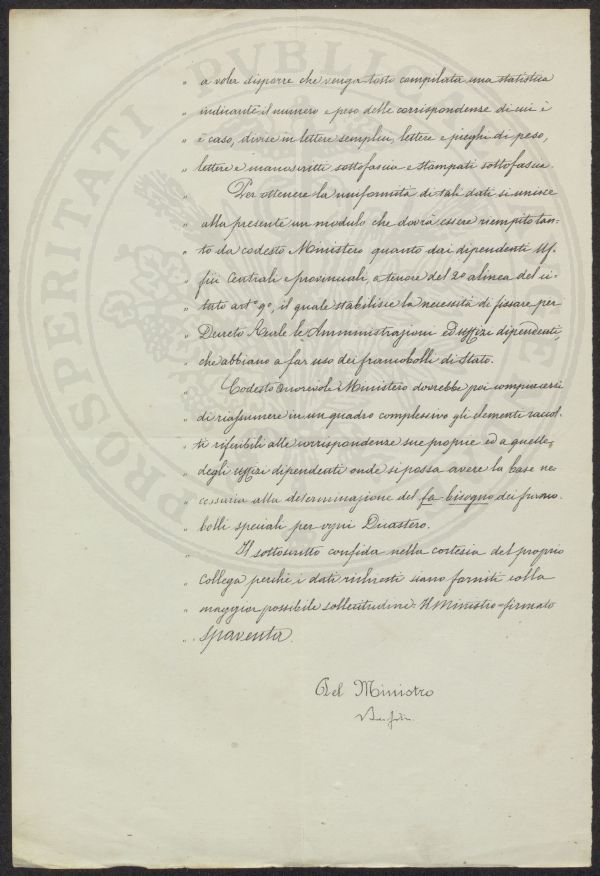 " a voler disporre che venga tosto compilata una statistica
" indicante il numero e peso delle corrispondenze di cui è
" è caso, divise in lettere semplici, lettere e pieghi di peso,
" lettere e manoscritti sottofascia e stampati sottofascia.
" Per ottenere la uniformità di tali dati si unisce
" alla presente un modulo che dovrà essere riempito tan-
" to da codesto Ministero quanto dai dipendenti Uf-
" fizi Centrali e provinciali, a tenore del 2° alinea del ci-
" tato art° 9°, il quale stabilisce la necessità di fissare per
" Decreto Reale le Amministrazioni ed uffizi dipendenti,
" che abbiano a far uso dei francobolli di Stato.
" Codesto onorevole Ministero dovrebbe poi compiacersi
" di riassumere in un quadro complessivo gli elementi raccol-
" ti riferibili alle corrispondenze sue proprie ed a quelle
" degli uffizi dipendenti onde si possa avere la base ne-
" cessaria alla determinazione del fa-bisogno dei franco-
" bolli speciali per ogni Dicastero.
" Il sottoscritto confida nella cortesia del proprio
" Collega perchè i dati richiesti siano forniti colla
" maggior possibile sollecitudine. Il Ministro = firmato
" Spaventa.
Pel Ministro
PROSPERITATI PVBLICAE